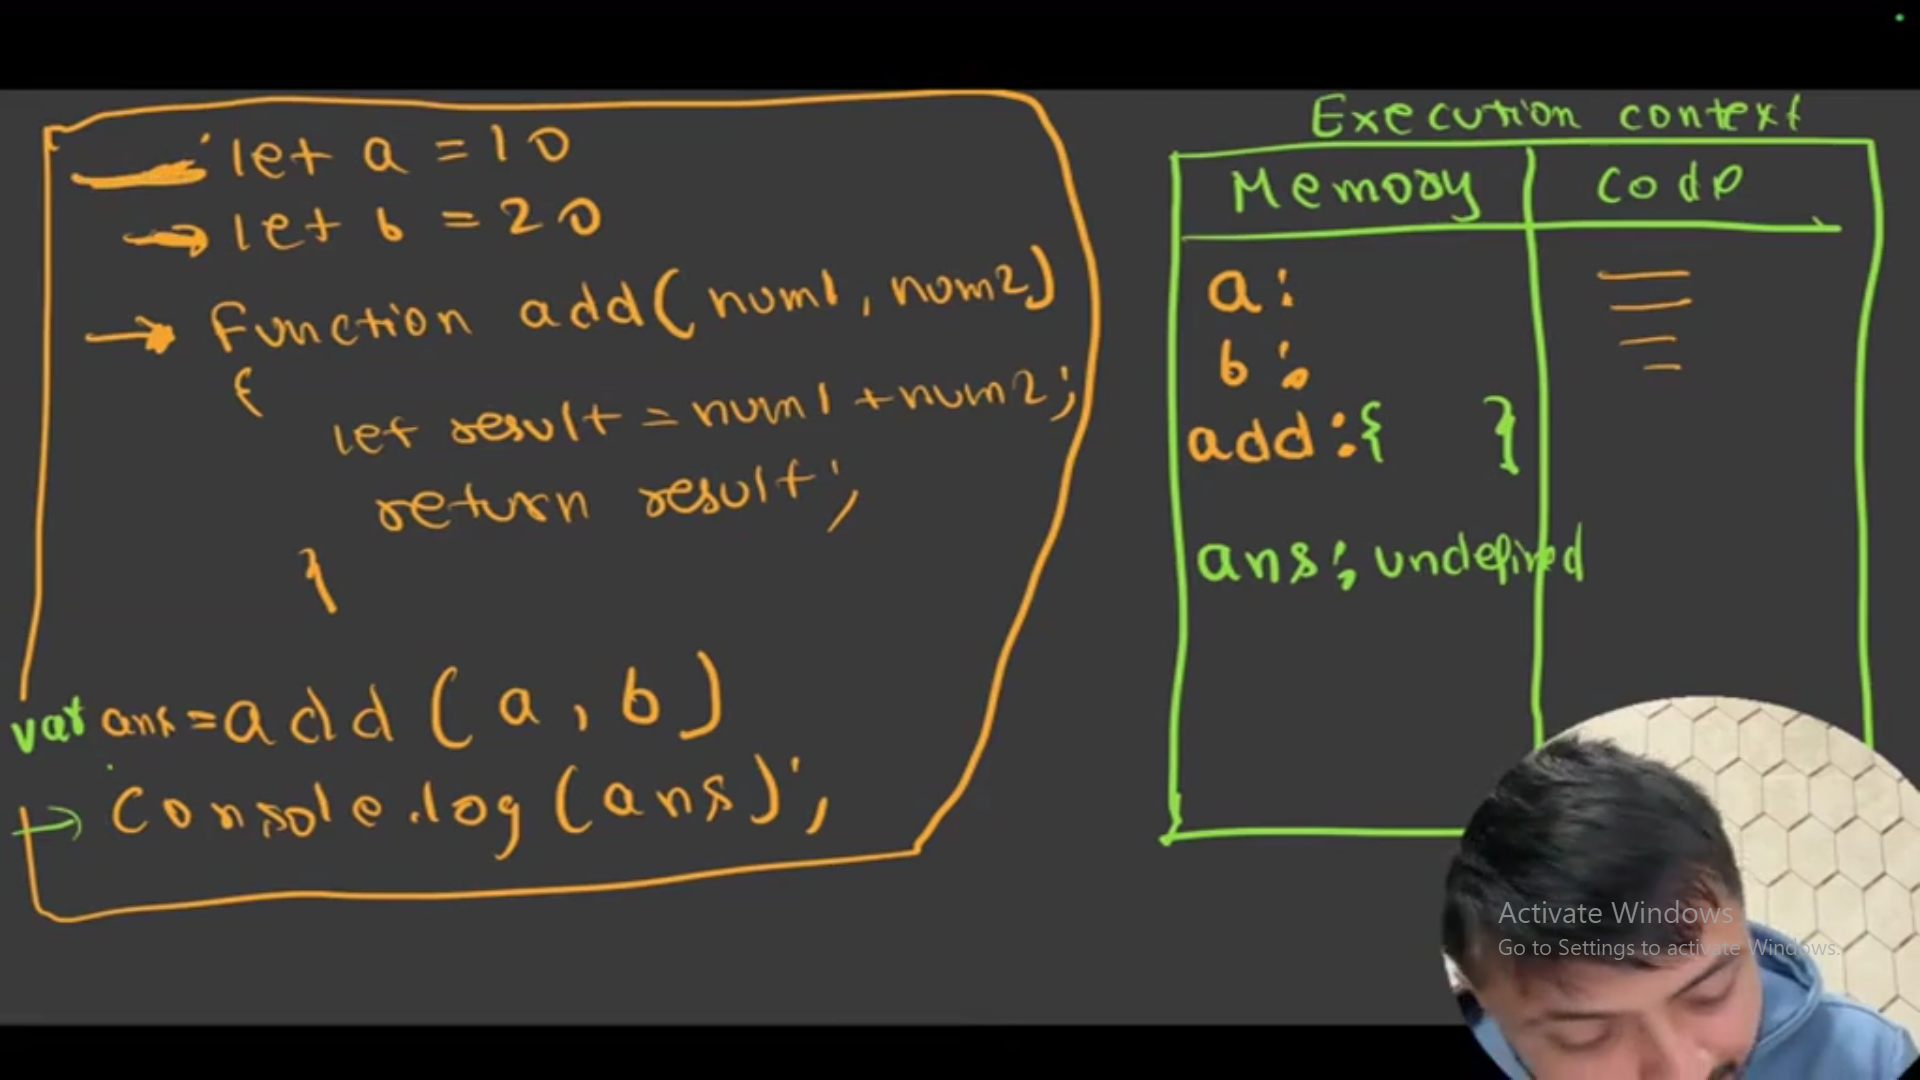 let a = 10
let b = 20
function add(num1, num2)
{
let result = num1 + num2;
return result;
}
var ans = add(a, b)
Console.log(ans);
Execution context
Memory Code
a:
b:
add:{ }
ans: undefined
Activate Windows
Go to Settings to activate Windows.